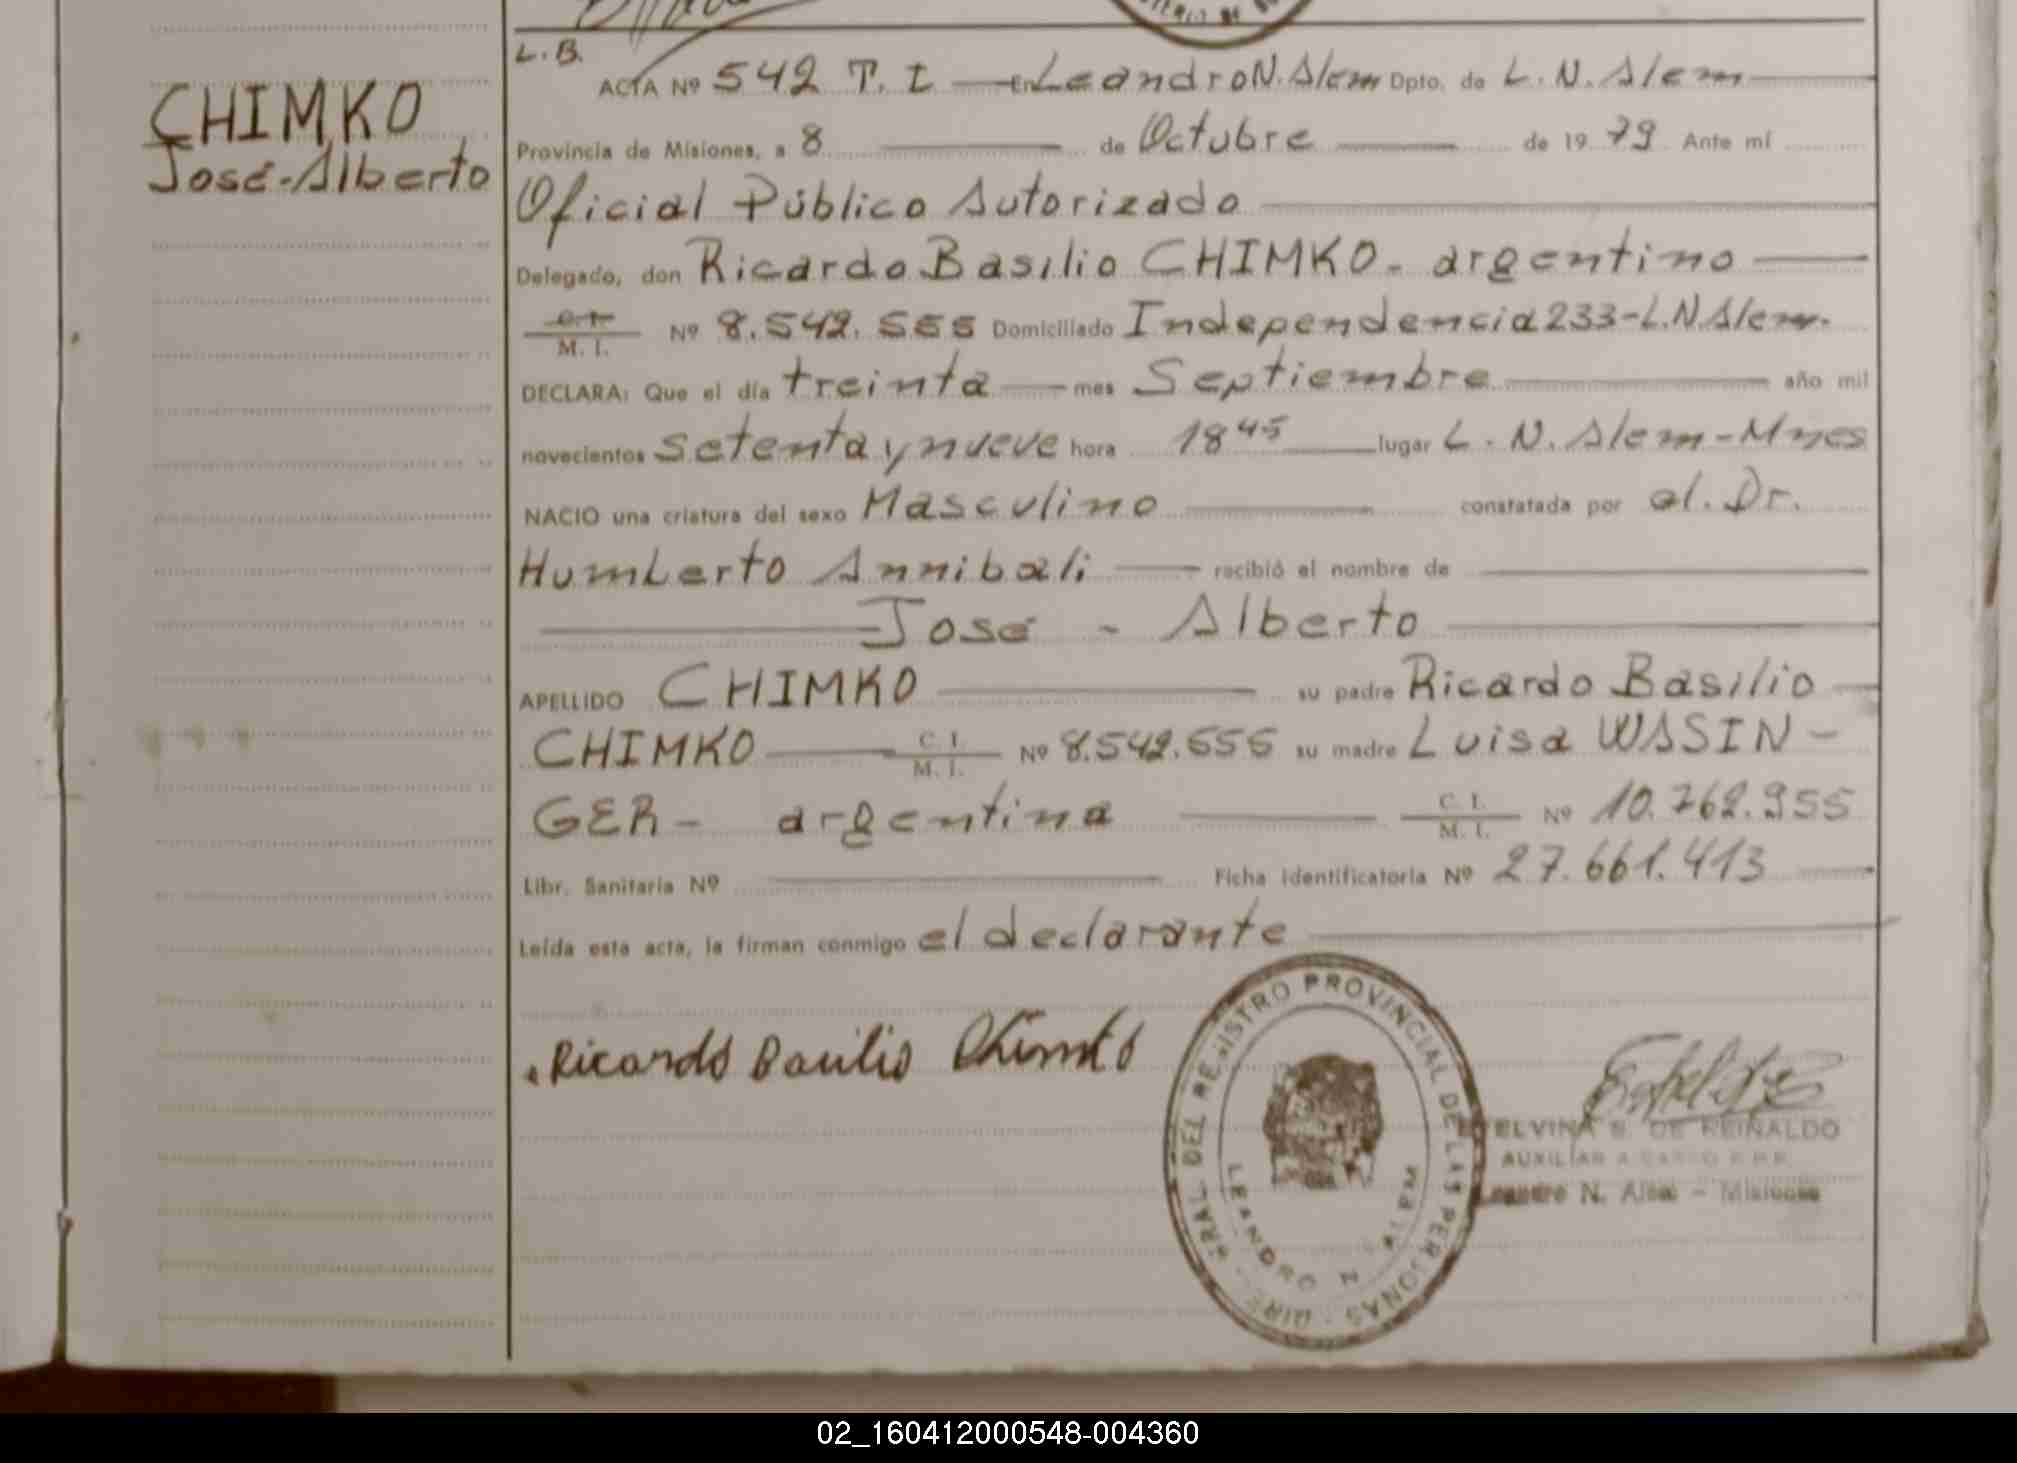 L.B.
CHIMKO
José-Alberto
ACTA Nº 542 T. I En Leandro N. Alem Dpto. de L. N. Alem
Provincia de Misiones, a 8 de Octubre de 1979 Ante mí
Oficial Público Autorizado
Delegado, don Ricardo Basilio CHIMKO - argentino
C. I.
M. I. Nº 8.542.555 Domiciliado Independencia 233-L.N.Alem.
DECLARA: Que el día treinta mes Septiembre año mil
novecientos setenta y nueve hora 18 45 lugar L. N. Alem-Mnes
NACIO una criatura del sexo Masculino constatada por el. Dr.
Humberto Annibali recibió el nombre de
José - Alberto
APELLIDO CHIMKO su padre Ricardo Basilio
CHIMKO C. I. M. I. Nº 8.542.555 su madre Luisa WASIN-
GER- argentina C. I. M. I. Nº 10.762.955
Libr. Sanitaria Nº Ficha identificatoria Nº 27.661.413
Leída esta acta, la firman conmigo el declarante
Ricardo Basilio Chimko
DIRE GRAL. DEL REGISTRO PROVINCIAL DE LAS PERSONAS
LEANDRO N ALEM
ETELVINA B. DE REINALDO
AUXILIAR A CARGO
Leandro N. Alem - Misiones
02_160412000548-004360